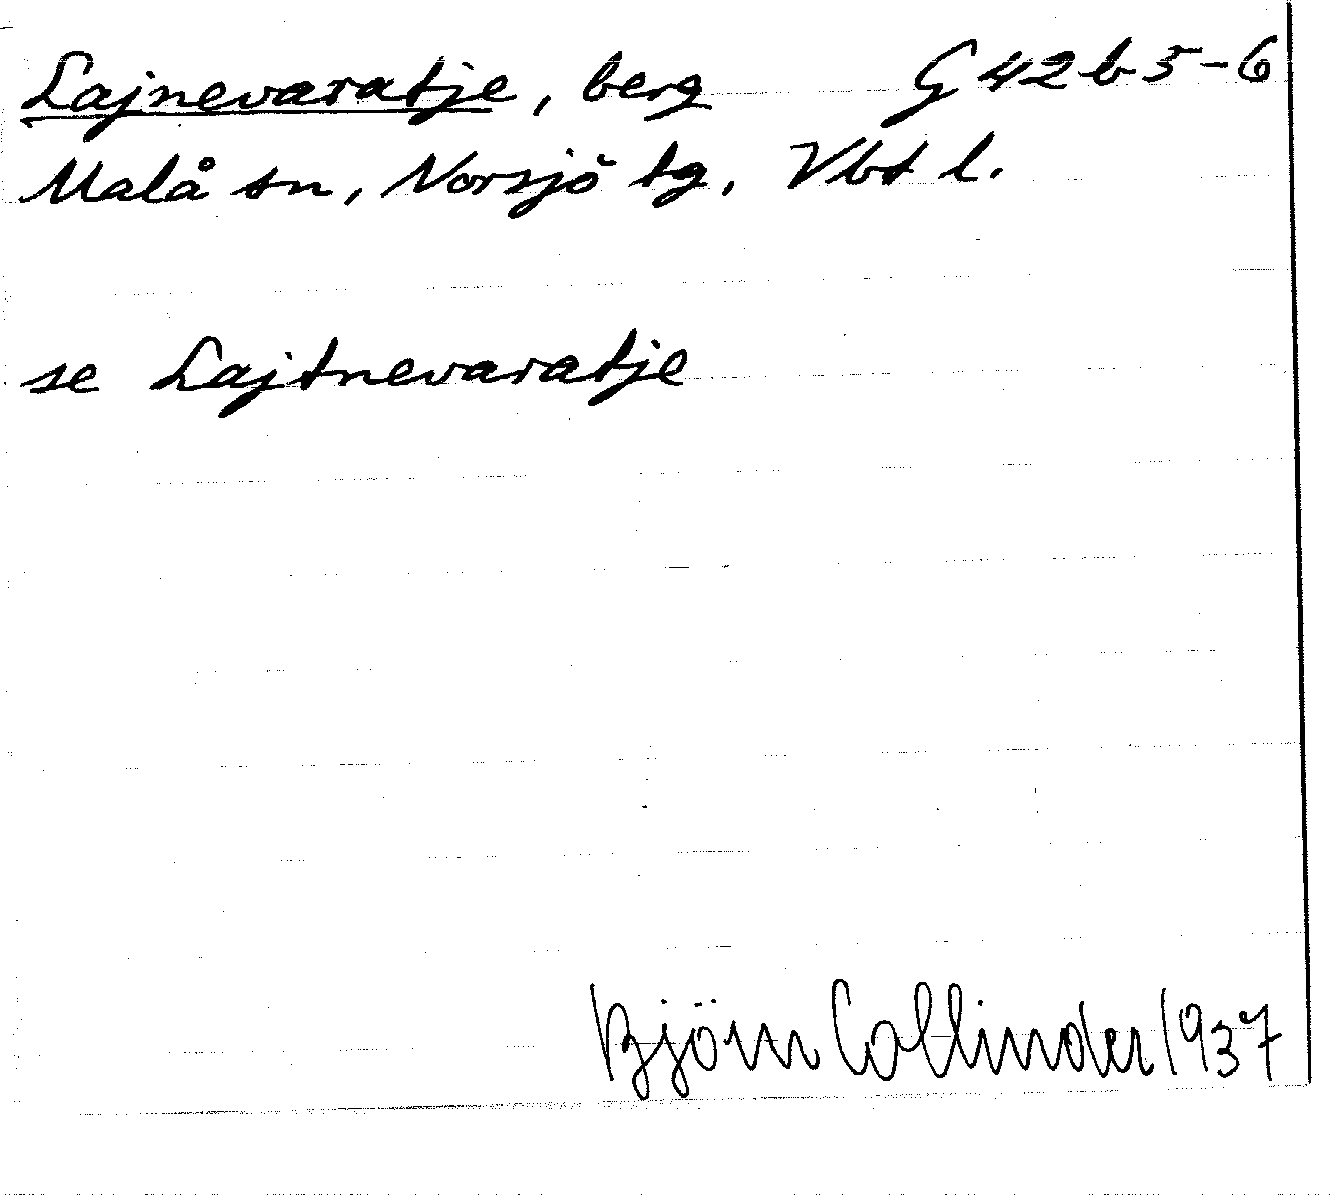 Lajnevaratje, berg G 42 b 5-6
Malå sn, Norsjö tg, Vbt l.
se Lajtnevaratje
Björn Collinder 1937